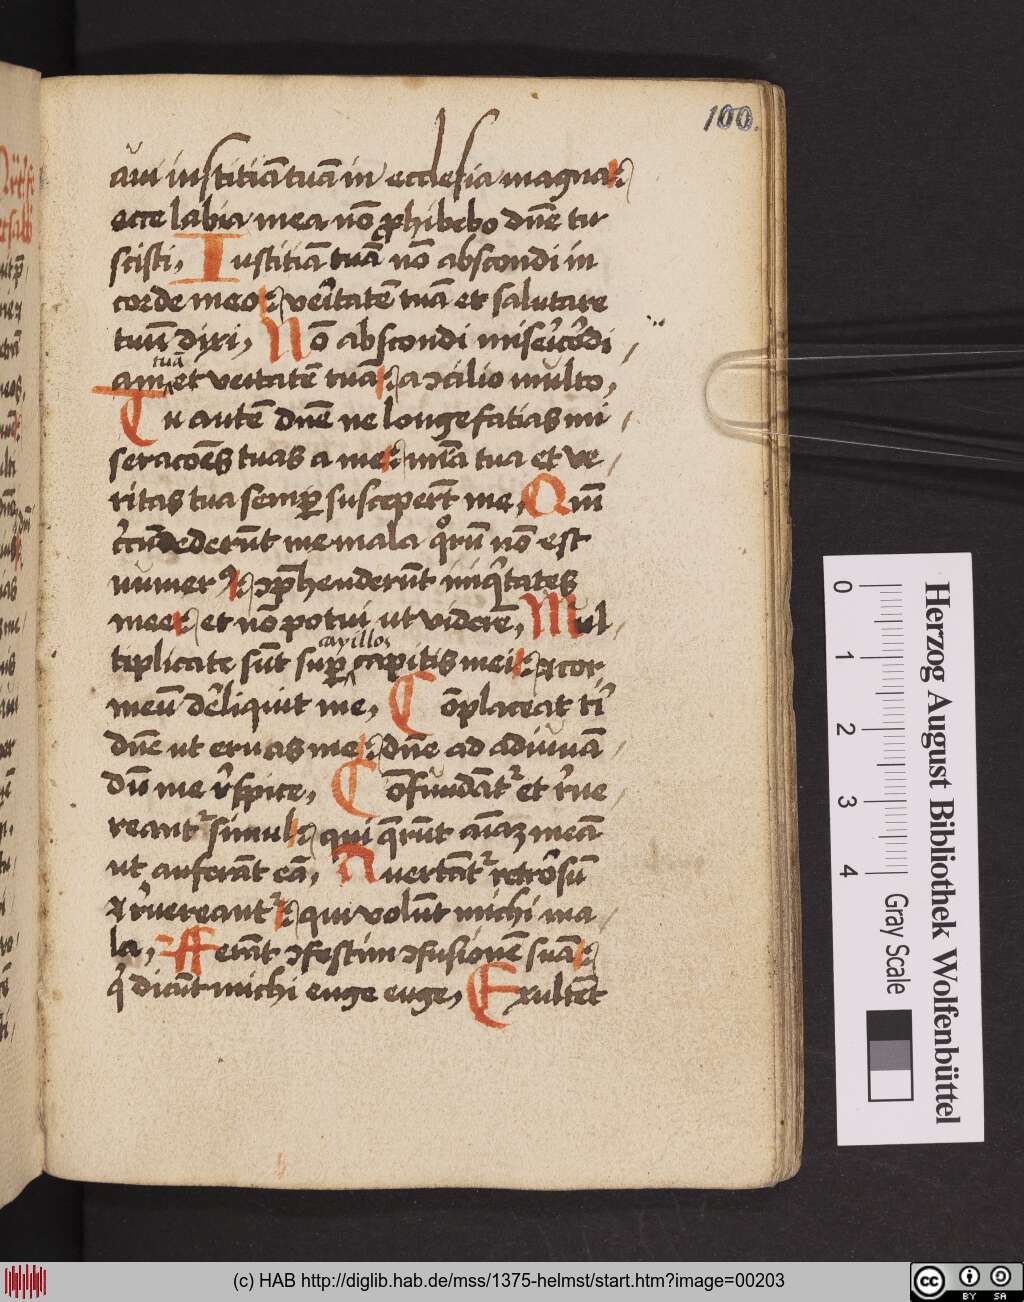 100.
aui iustitiā tuā in ecclesia magna:
ecce labia mea nō ꝓhibebo dn̄e tu
scisti, Iustitiā tuā nō abscondi in
corde meo: veritatē tuā et salutare
tuū dixi, Nō abscondi miśicōrdi/
am tuā et veītatē tuā: a ꝯcilio multo,
Tu autē dn̄e ne longe fatias mi/
seracōēs tuas a me: mīa tua et ve/
ritas tua semꝑ susceperūt me, Qm̄
ĉcūdederūt me mala qͦrū nō est
numerꝯ: ꝯp̄henderūt iniq̇tates
mee: et nō potui ut viderē, Mul/
tiplicate sūt suꝑ capillos capitis mei: ⁊ cor
meū deͬliquit me, Cōplaceat tⁱ
dn̄e ut eruas me: dn̄e ad adiuuā/
dū me r̄spice, Cōfūdātᷣ et r̄ue/
reantᷣ simul: qui q̄rūt aīaꝫ meā
ut auferāt eā, Auertātᷣ retrorsū
⁊ r̄uereantᷣ: qui volūt michi ma/
la, Fferāt ꝯfestim ꝯfusionē suā:
q̇ dicūt michi euge euge, Exultēt
0 1 2 3 4
Herzog August Bibliothek Wolfenbüttel
Gray Scale
(c) HAB http://diglib.hab.de/mss/1375-helmst/start.htm?image=00203
cc BY SA